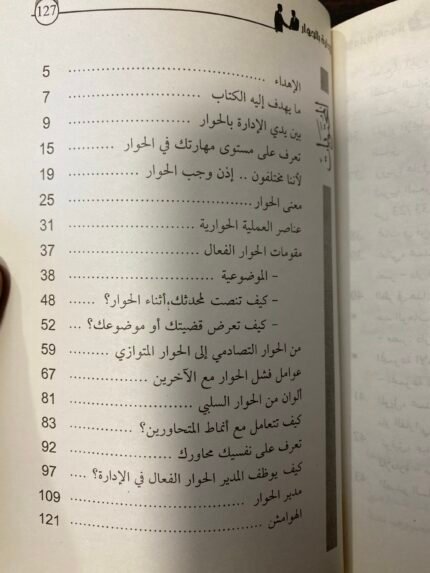 127
الإدارة بالحوار
المحتويات
الإهداء 5
ما يهدف إليه الكتاب 7
بين يدي الإدارة بالحوار 9
تعرف على مستوى مهارتك في الحوار 15
لأننا مختلفون .. إذن وجب الحوار 19
معنى الحوار 25
عناصر العملية الحوارية 31
مقومات الحوار الفعال 37
- الموضوعية 38
- كيف تنصت لمحدثك أثناء الحوار؟ 48
- كيف تعرض قضيتك أو موضوعك؟ 52
من الحوار التصادمي إلى الحوار المتوازي 59
عوامل فشل الحوار مع الآخرين 67
ألوان من الحوار السلبي 81
كيف تتعامل مع أنماط المتحاورين؟ 83
تعرف على نفسيك محاورك 92
كيف يوظف المدير الحوار الفعال في الإدارة؟ 97
مدير الحوار 109
الهوامش 121